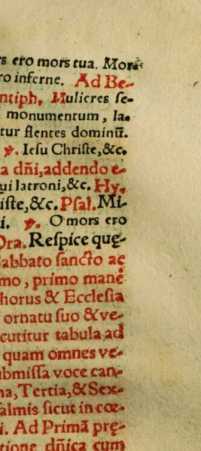 s ero mors tua. Mors
ro inferne. Ad Be-
ntiph. Mulieres se-
monumentum, la-
tur flentes dominū.
℣. Iesu Christe, &c.
a dñi, addendo e-
ui latroni, &c. Hy.
iste, &c. Psal. Mi-
i. ℣. O mors ero
Ora. Respice quę-
abbato sancto ac
mo, primo mane
horus & Ecclesia
ornatu suo & ve-
cutitur tabula ad
quam omnes ve-
ubmissa voce can-
na, Tertia, & Sex-
almis sicut in cœ-
i. Ad Primā prę-
tione dñica cum